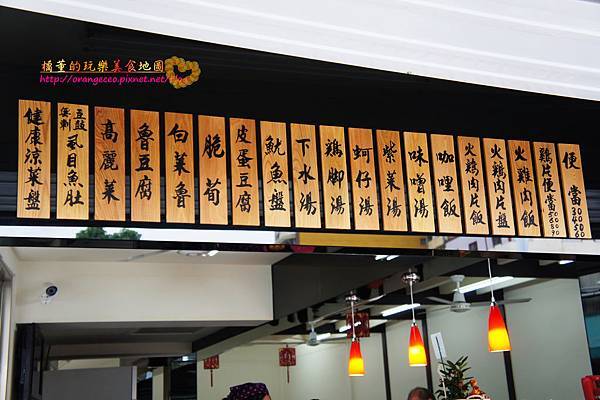 橘董的玩樂美食地圖
http://orangeceo.pixnet.net/blog
便當
雞片便當
火雞肉飯
火雞肉片盤
火雞肉片飯
咖哩飯
味噌湯
紫菜湯
蚵仔湯
雞腳湯
下水湯
魷魚盤
皮蛋豆腐
脆筍
白菜魯
魯豆腐
高麗菜
豆鼓 無刺 虱目魚肚
健康涼菜盤